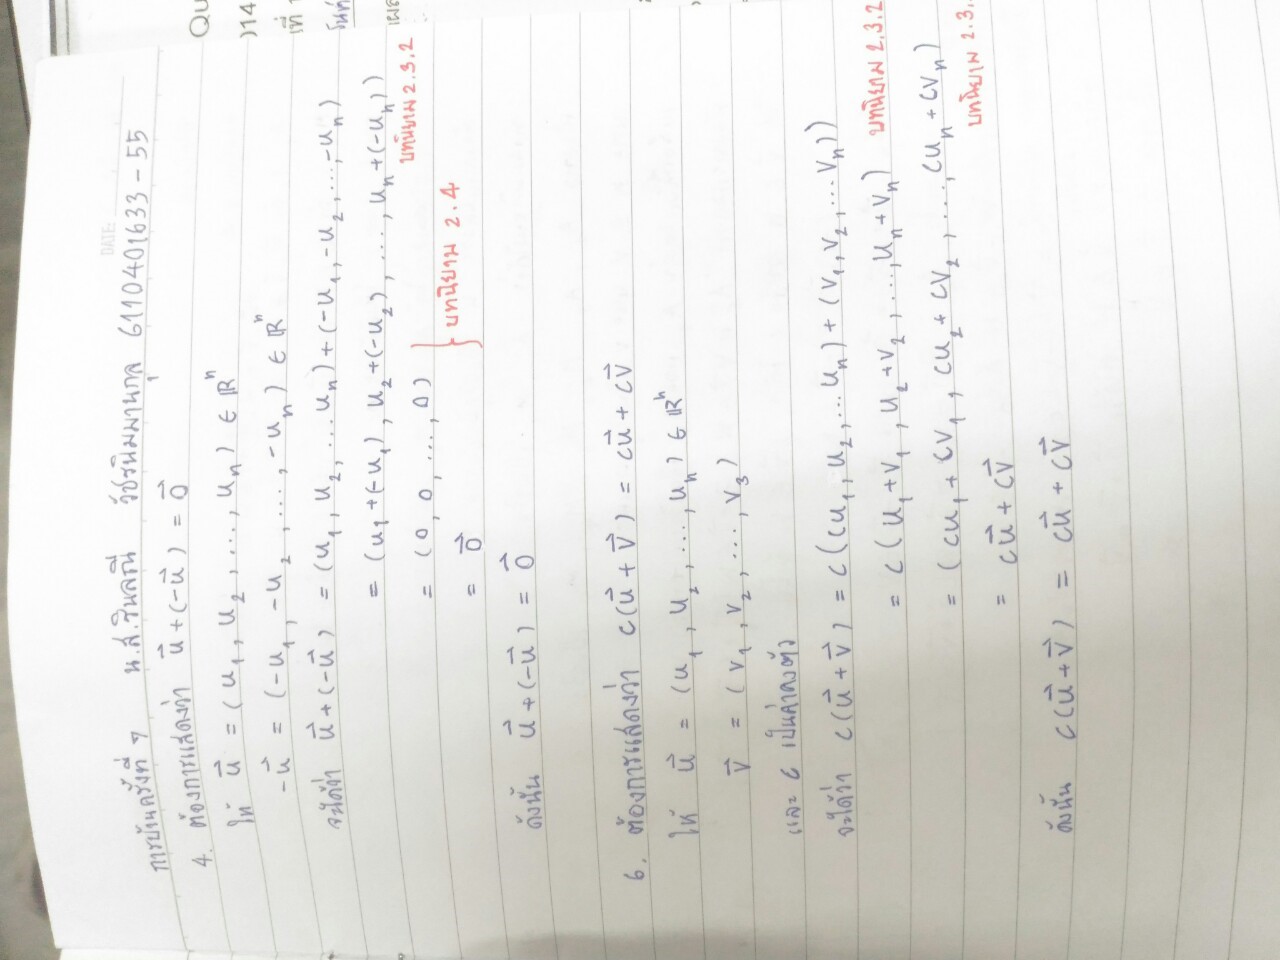 DATE:
การบ้านครั้งที่ 7 น.ส.ชินลธณี วัชรนิมมานกุล 6110401633-55
4. ต้องการแสดงว่า u⃗ + (-u⃗) = 0⃗
ให้ u⃗ = (u₁, u₂, ..., uₙ) ∈ ℝⁿ
-u⃗ = (-u₁, -u₂, ..., -uₙ) ∈ ℝⁿ
จะได้ว่า u⃗ + (-u⃗) = (u₁, u₂, ... uₙ) + (-u₁, -u₂, ..., -uₙ)
= (u₁ + (-u₁), u₂ + (-u₂), ..., uₙ + (-uₙ))
บทนิยาม 2.3.2
= (0, 0, ..., 0)
บทนิยาม 2.4
= 0⃗
ดังนั้น u⃗ + (-u⃗) = 0⃗
6. ต้องการแสดงว่า c(u⃗ + v⃗) = cu⃗ + cv⃗
ให้ u⃗ = (u₁, u₂, ..., uₙ) ∈ ℝⁿ
v⃗ = (v₁, v₂, ..., v₃)
และ c เป็นค่าคงตัว
จะได้ว่า c(u⃗ + v⃗) = c((u₁, u₂, ... uₙ) + (v₁, v₂, ... vₙ))
= c(u₁ + v₁, u₂ + v₂, ..., uₙ + vₙ) บทนิยาม 2.3.2
= (cu₁ + cv₁, cu₂ + cv₂, ..., cuₙ + cvₙ)
บทนิยาม 2.3.
= cu⃗ + cv⃗
ดังนั้น c(u⃗ + v⃗) = cu⃗ + cv⃗
Qu
014
ที่